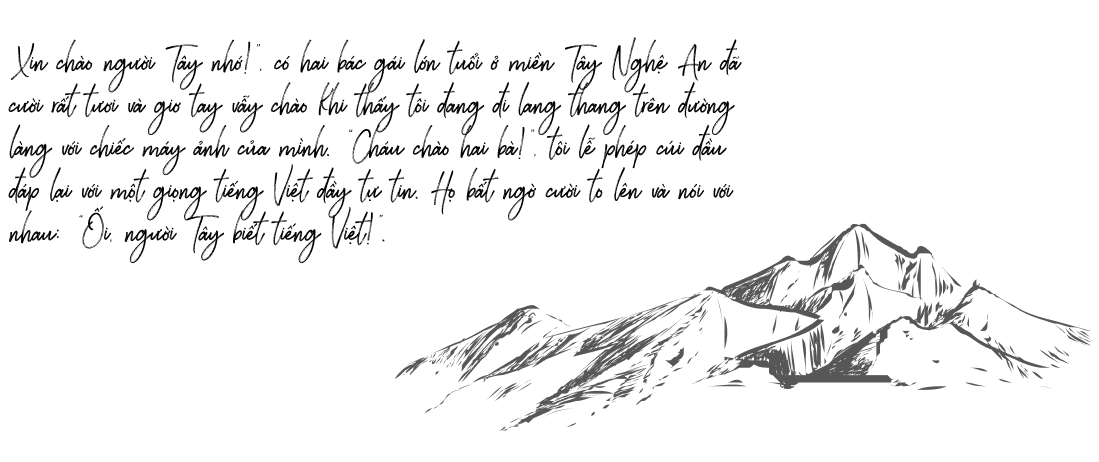 Xin chào người Tây nhớ!", có hai bác gái lớn tuổi ở miền Tây Nghệ An đã
cười rất tươi và giơ tay vẫy chào khi thấy tôi đang đi lang thang trên đường
làng với chiếc máy ảnh của mình. "Cháu chào hai bà!", tôi lễ phép cúi đầu
đáp lại với một giọng tiếng Việt đầy tự tin. Họ bất ngờ cười to lên và nói với
nhau: "Ối, người Tây biết tiếng Việt!".